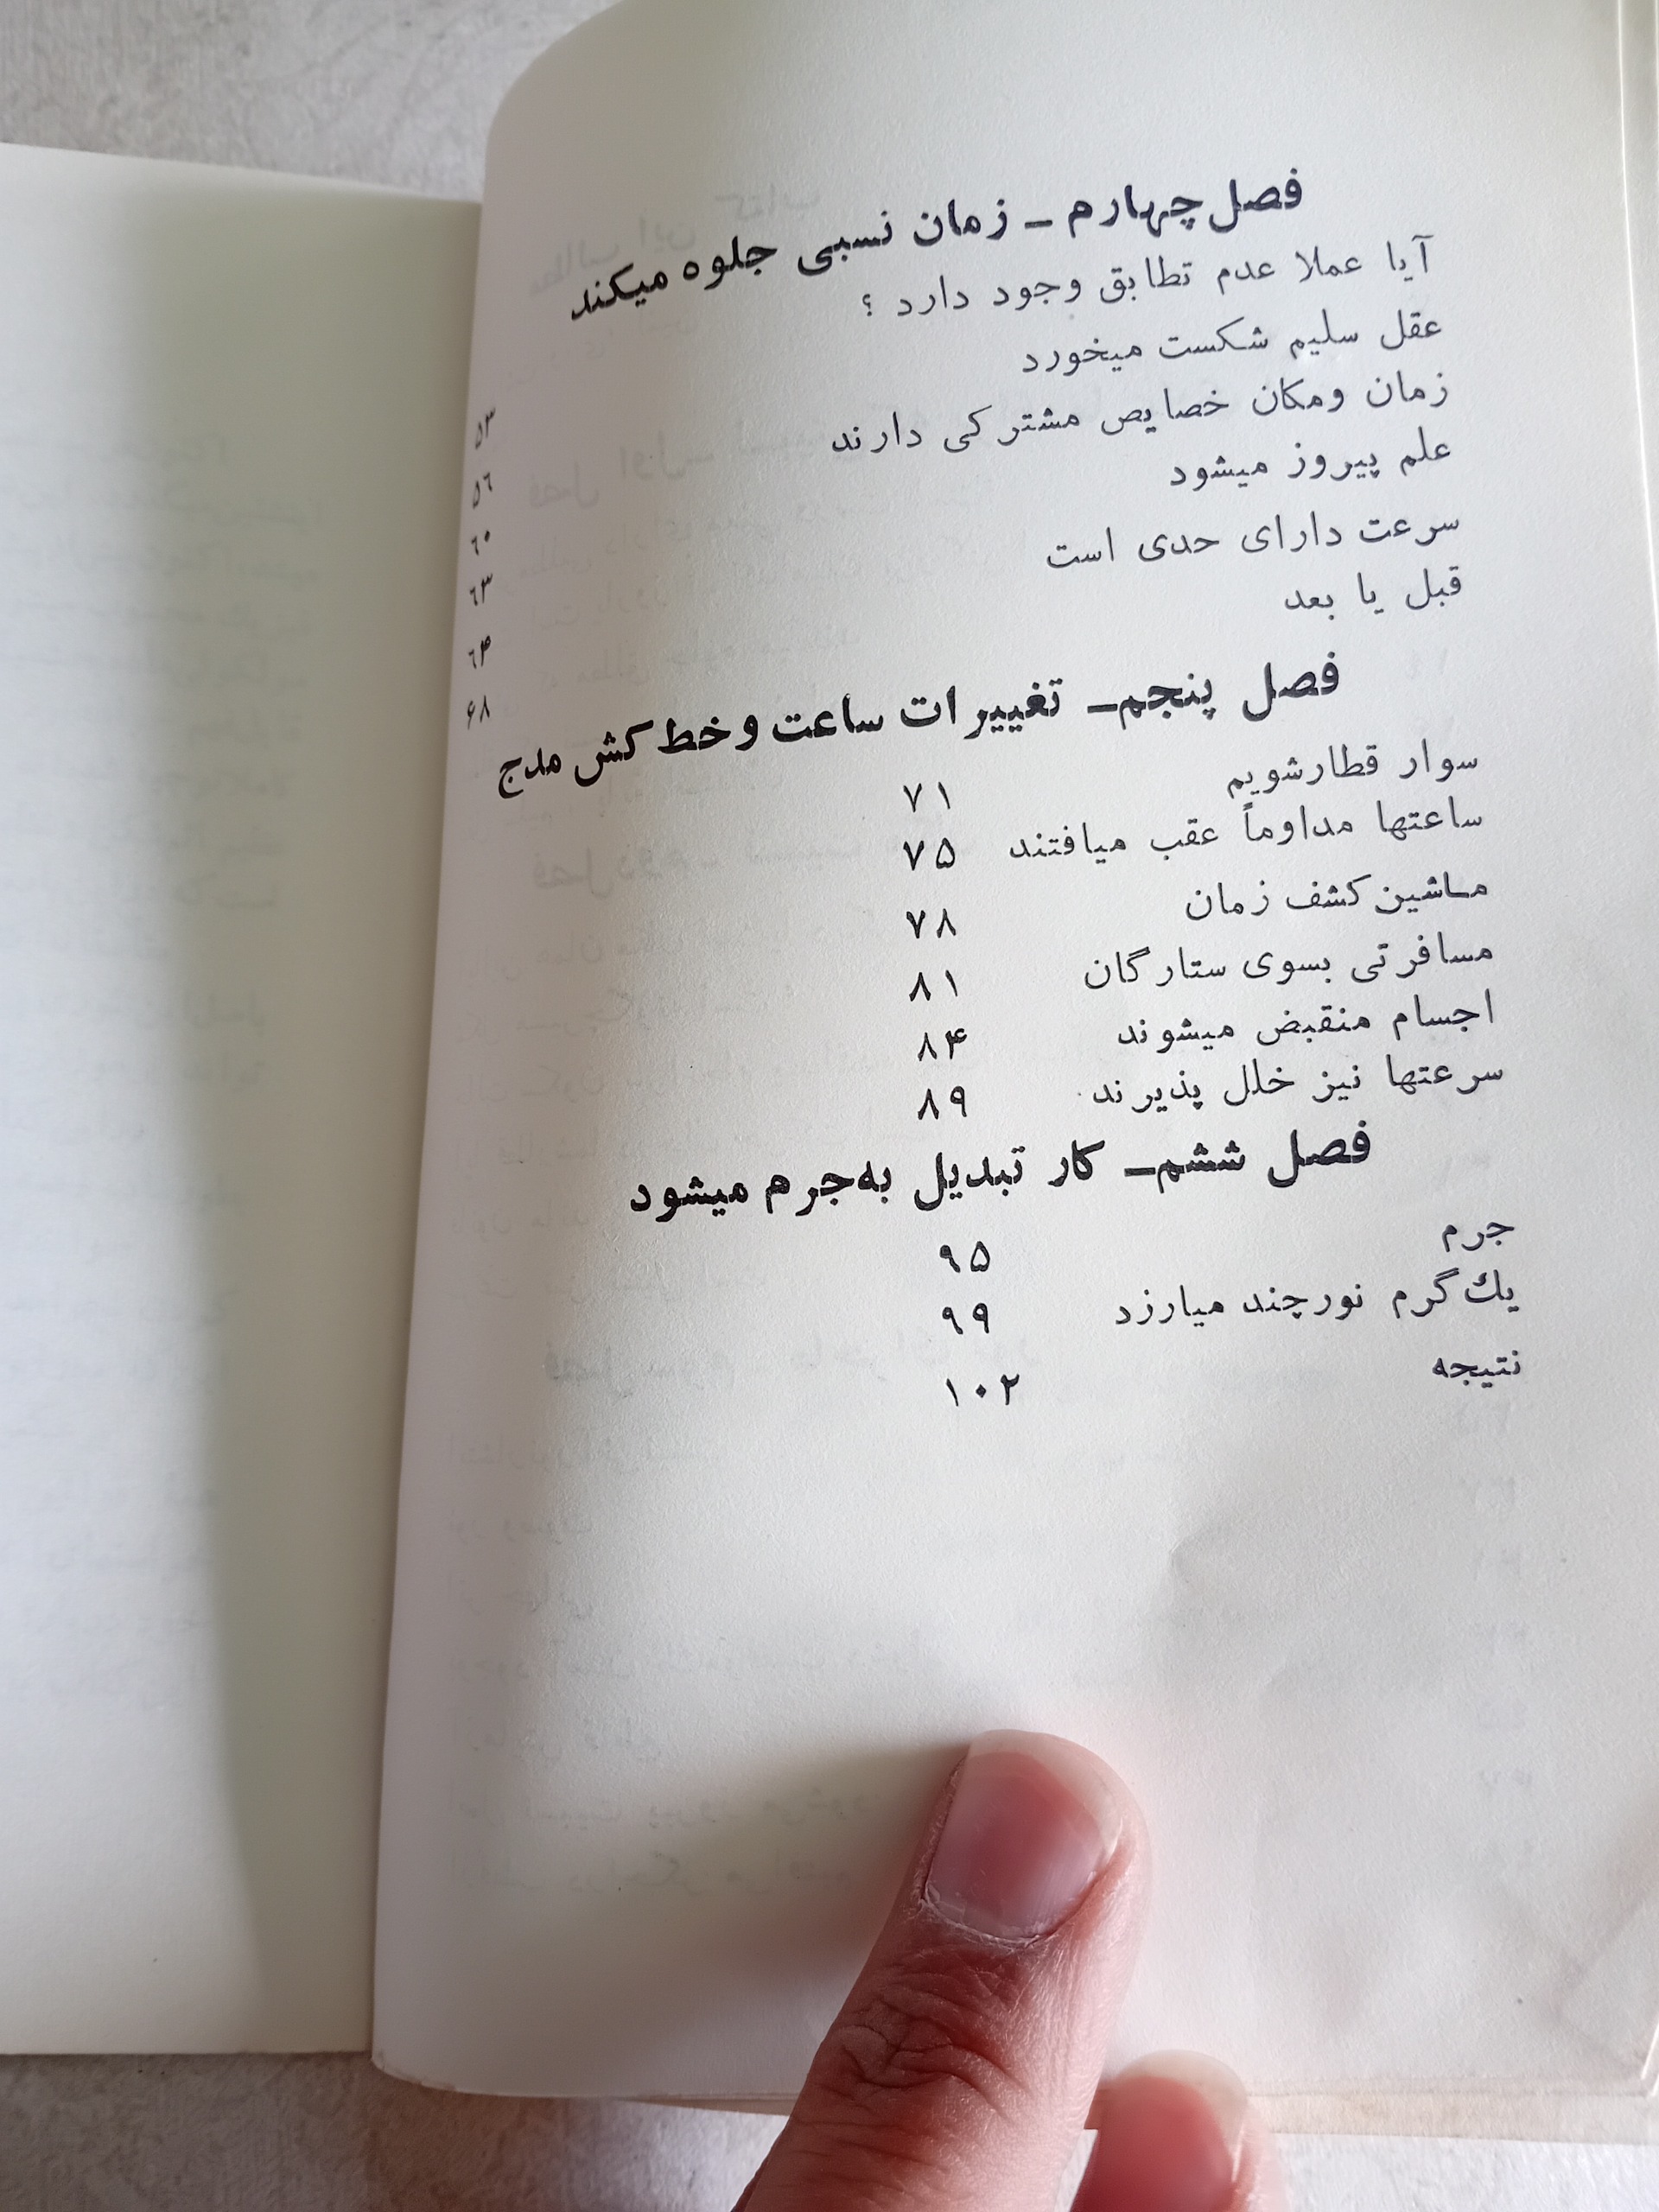 فصل چهارم ـ زمان نسبی جلوه میکند
آیا عملا عدم تطابق وجود دارد ؟ ۵۳
عقل سلیم شکست میخورد ۵۶
زمان ومکان خصایص مشترکی دارند ۶۰
علم پیروز میشود ۶۳
سرعت دارای حدی است ۶۴
قبل یا بعد ۶۸
فصل پنجم ـ تغییرات ساعت و خط کش مدج
سوار قطار شویم ۷۱
ساعتها مداوماً عقب میافتند ۷۵
ماشین کشف زمان ۷۸
مسافرتی بسوی ستارگان ۸۱
اجسام منقبض میشوند ۸۴
سرعتها نیز خلل پذیرند ۸۹
فصل ششم ـ کار تبدیل به جرم میشود
جرم ۹۵
یك گرم نور چند میارزد ۹۹
نتیجه ۱۰۲